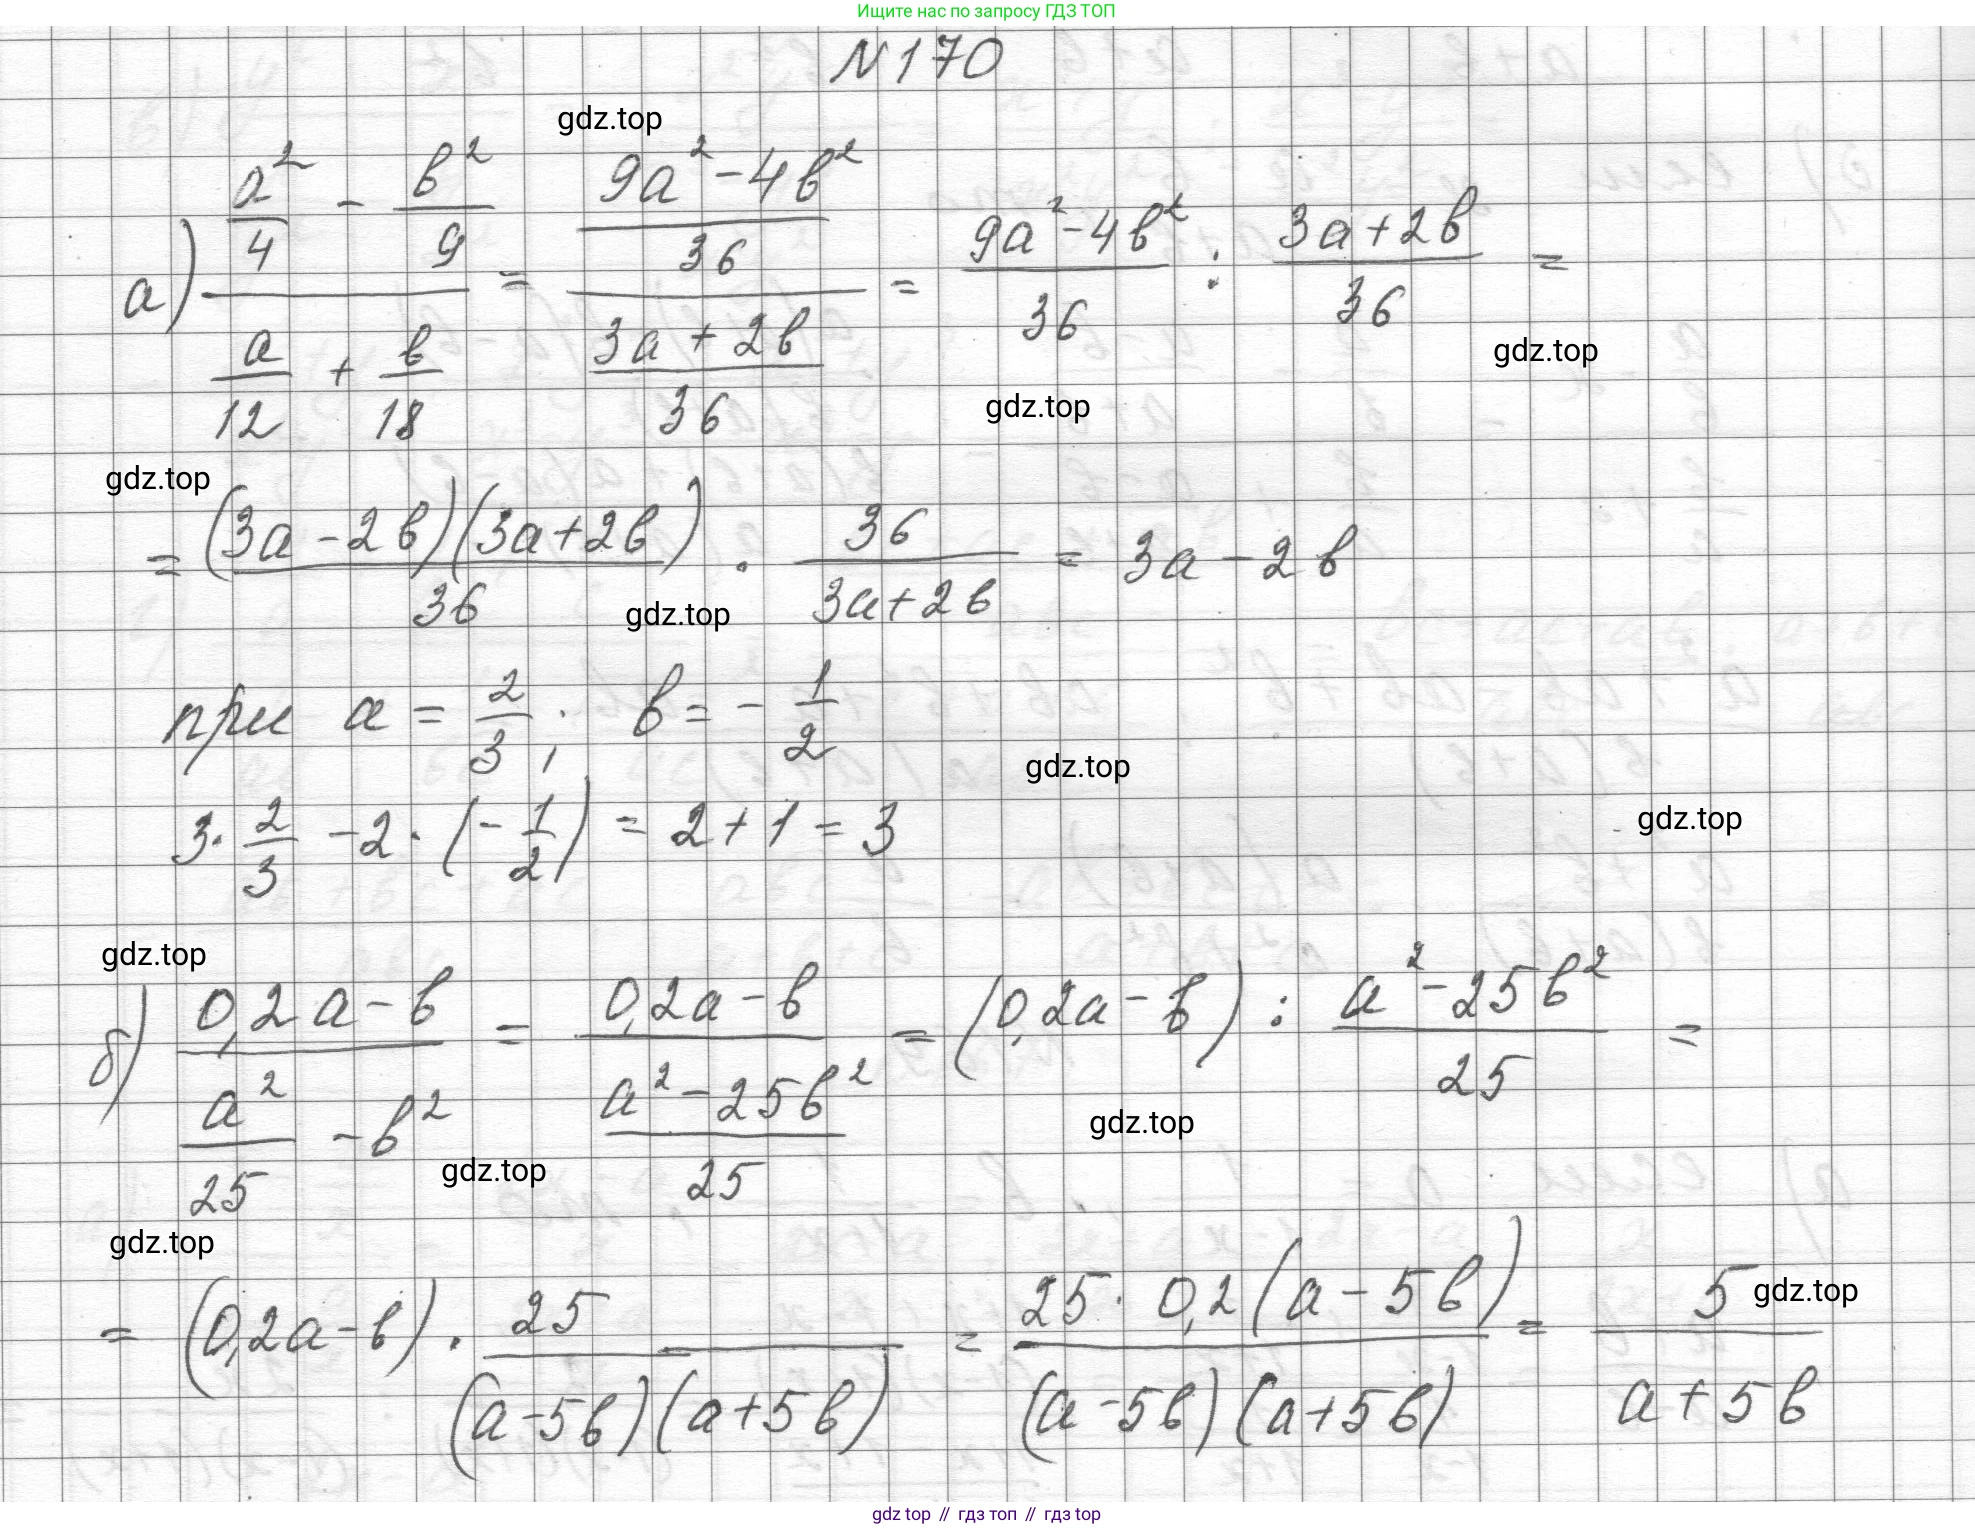 Ищите нас по запросу ГДЗ ТОП
N 170
gdz.top
а) (a²/4 - b²/9)/(a/12 + b/18) = ((9a² - 4b²)/36)/((3a + 2b)/36) = (9a² - 4b²)/36 : (3a + 2b)/36 =
gdz.top
gdz.top
gdz.top
= (3a - 2b)(3a + 2b)/36 · 36/(3a + 2b) = 3a - 2b
gdz.top
при a = 2/3; b = - 1/2
gdz.top
3 · 2/3 - 2 · (- 1/2) = 2 + 1 = 3
gdz.top
gdz.top
б) (0,2a - b)/(a²/25 - b²) = (0,2a - b)/((a² - 25b²)/25) = (0,2a - b) : (a² - 25b²)/25 =
gdz.top
gdz.top
gdz.top
= (0,2a - b) · 25/((a - 5b)(a + 5b)) = 25 · 0,2(a - 5b)/((a - 5b)(a + 5b)) = 5/(a + 5b)
gdz.top
gdz top // гдз топ // гдз top